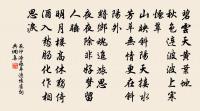 碧雲天黃葉地
秋色連波波上寒
煙翠
山映斜陽天接水
芳草無情更在斜
陽外
黯鄉魂追旅思
夜夜除非好夢留
人睡
明月樓高休獨倚
酒入愁腸化作相
思淚